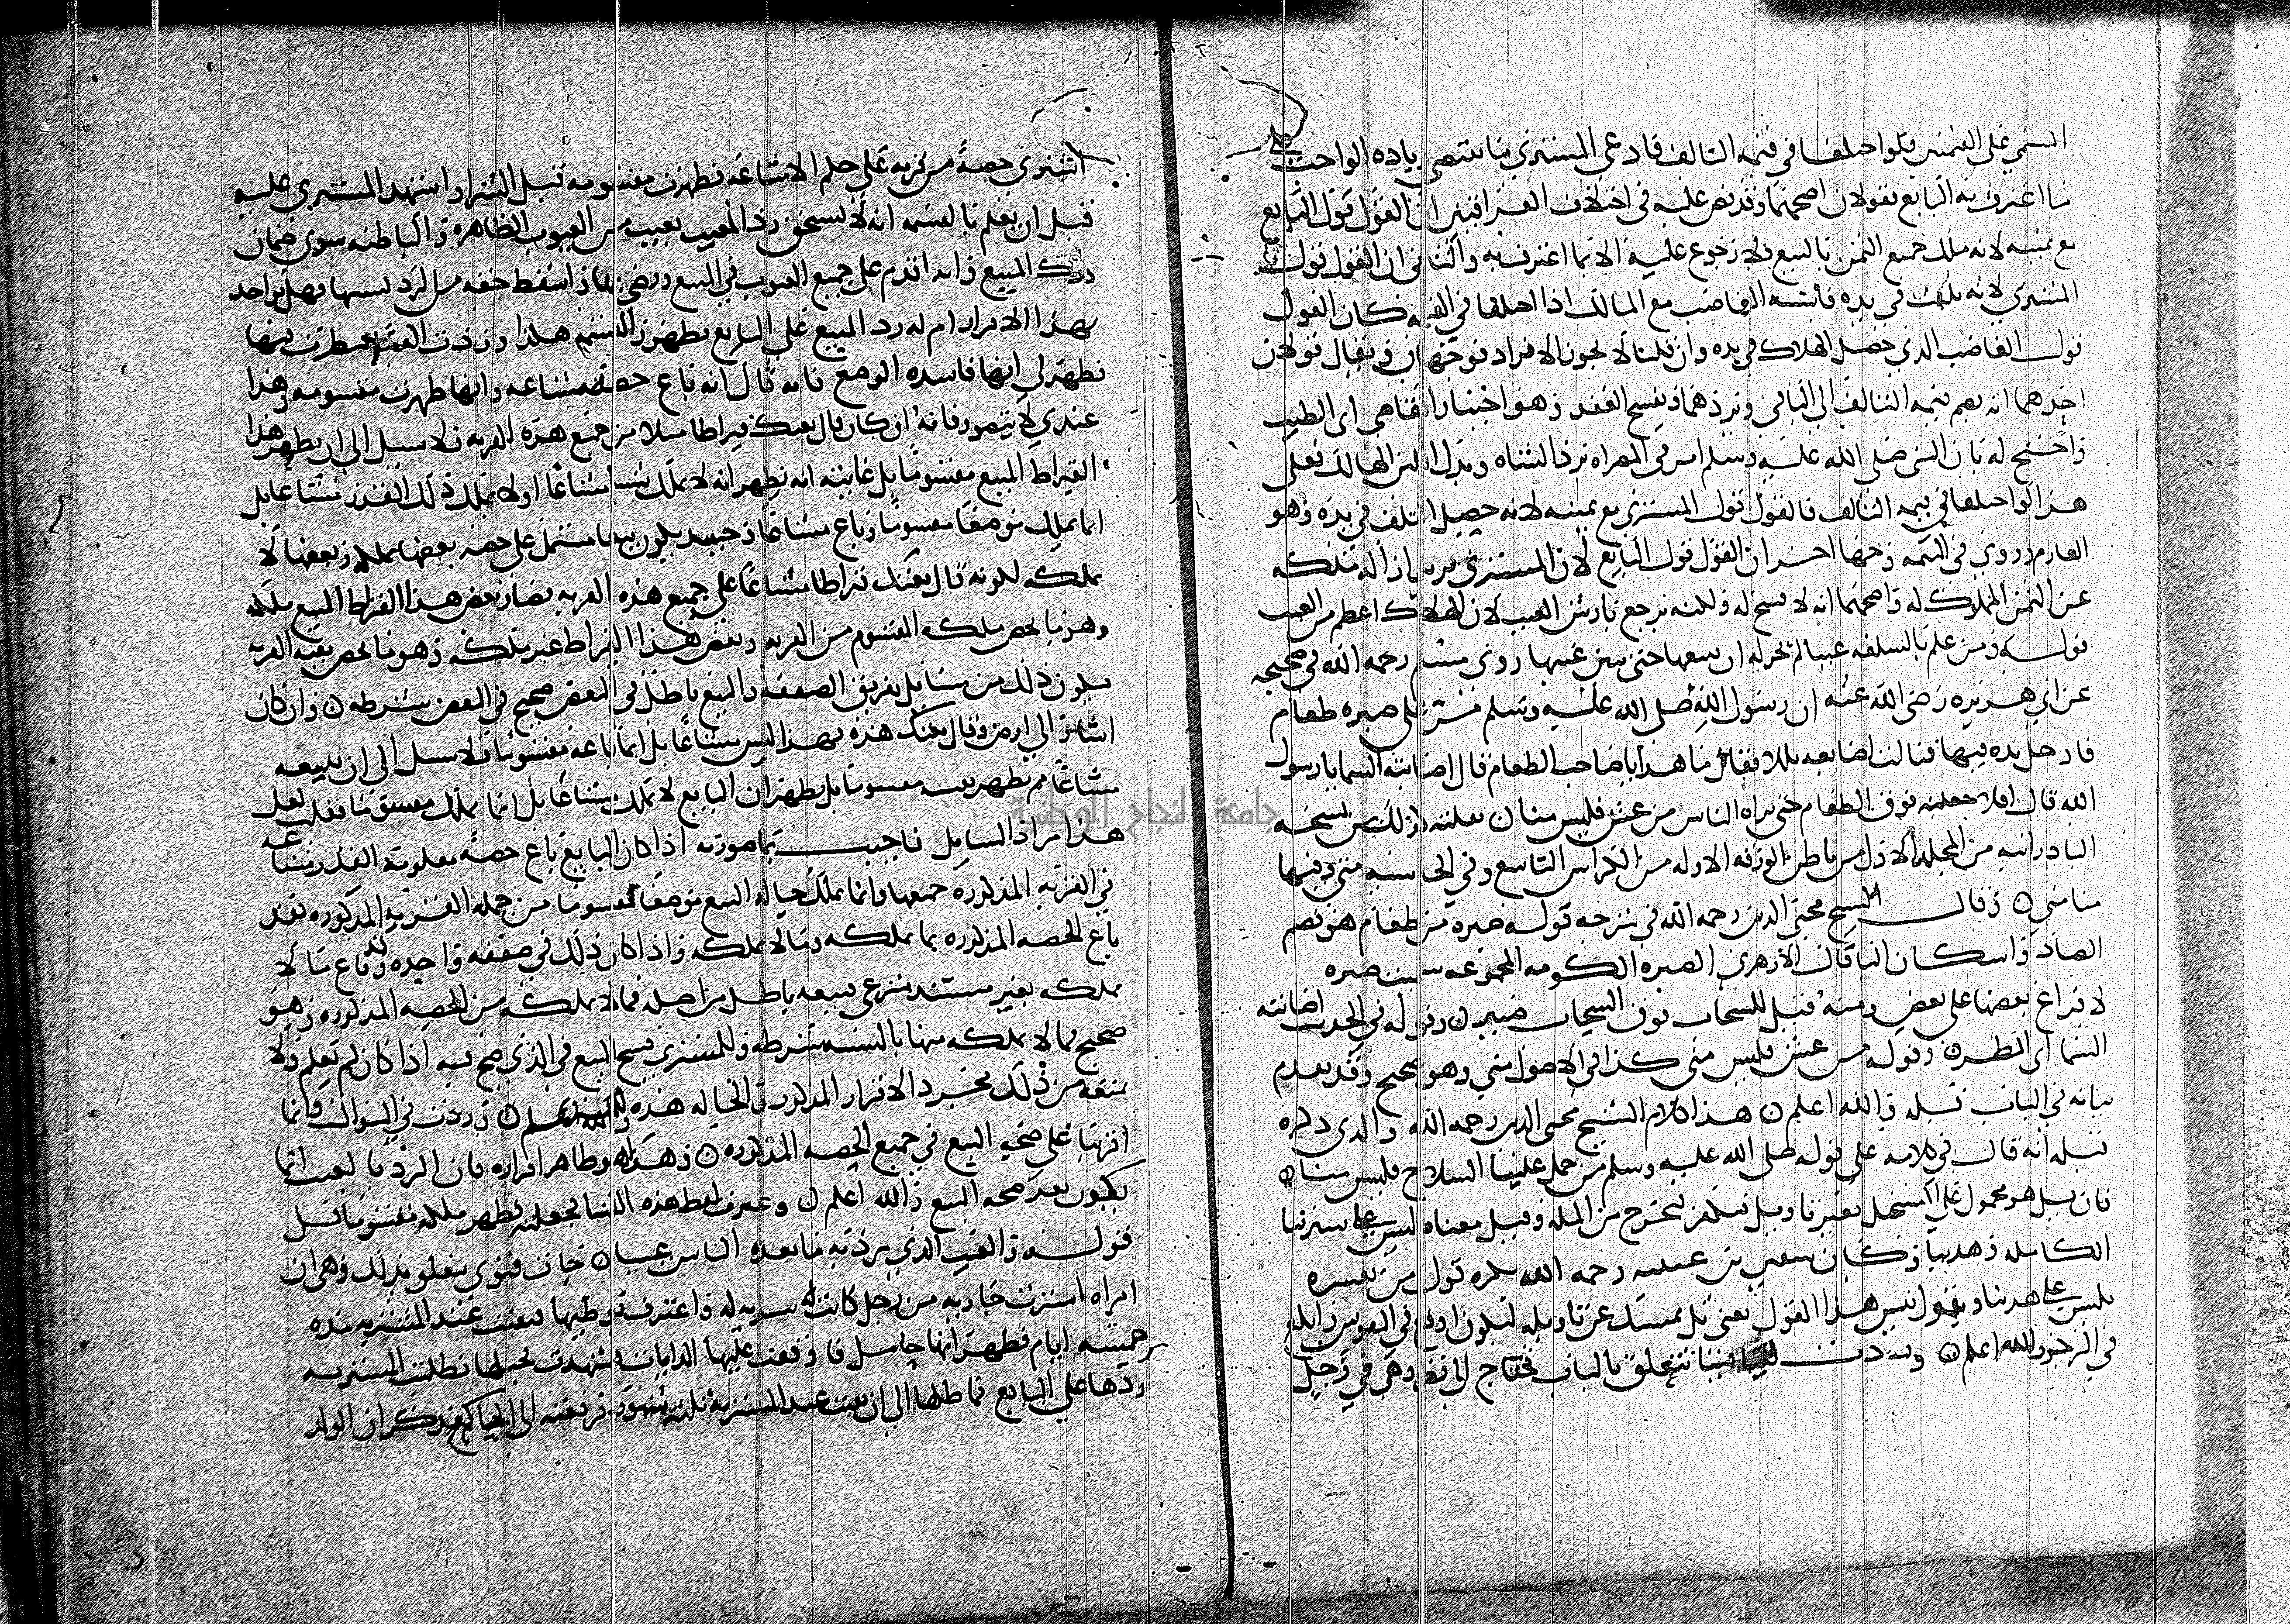 المسمى على القيمتين فلو اختلفا في قيمة التالف فادعى المشتري ما يقتضي زيادة الواجب على
ما اعترف به البايع فقولان اصحهما وقد نص عليه في اختلاف العراقيين ان القول قول البايع
مع يمينه لانه ملك جميع الثمن بالبيع فلا رجوع عليه الا بما اعترف به والثاني ان القول قول
المشتري لانه تلف في يده فاشبه الغاصب مع المالك اذا اختلفا في القيمة كان القول
قول الغاصب الذي حصل الهلاك في يده وان قلنا لا يجوز الافراد فوجهان ويقال قولان
احدهما انه يضم قيمة التالف الى الباقي ويردهما ويفسخ العقد وهو اختيار القاضي ابي الطيب
واحتج له بان النبي صلى الله عليه وسلم امر في المصراة برد الشاة وبدل اللبن الهالك فعلى
هذا لو اختلفا في قيمة التالف فالقول قول المشتري مع يمينه لانه حصل التلف في يده وهو
الغارم وروي في التتمة وجها اخر ان القول قول البايع لان المشتري يريد ازالة ملكه
عن الثمن المملوك له واصحهما انه لا يفسخ له ولكنه يرجع بارش العيب لان الهلاك اعظم من العيب
قوله ومن علم بالسلعة عيبا لم يجز له ان يبيعها حتى يبين عيبها روى مسلم رحمه الله في صحيحه
عن ابي هريرة رضي الله عنه ان رسول الله صلى الله عليه وسلم مر على صبرة طعام
فادخل يده فيها فنالت اصابعه بللا فقال ما هذا يا صاحب الطعام قال اصابته السما يا رسول
الله قال افلا جعلته فوق الطعام حتى يراه الناس من غش فليس منا ن نقلته وذلك من نسخة
البادرائية من المجلد الاول من باطن الورقة الاولة من الكراس التاسع وفي الحاشية مني وفيها
منا مني ن وقال الشيخ محيي الدين رحمه الله في شرحه قوله صبرة من طعام هو بضم
الصاد واسكان البا قال الازهري الصبرة الكومة المجموعة سميت صبرة
لافراغ بعضها على بعض ومنه قيل للسحاب فوق السحاب صبير ن وقوله في الحديث اصابته
السما اي المطر ن وقوله من غش فليس مني كذا في الاصول مني وهو صحيح وقد تقدم
بيانه في الباب قبله والله اعلم ن هذا كلام الشيخ محيي الدين رحمه الله والذي ذكره
قبله انه قال في كلامه على قوله صلى الله عليه وسلم من حمل علينا السلاح فليس منا ن
فان قيل هو محمول على المستحل بغير تاويل فيكفر ليخرج من الملة وقيل معناه ليس على سيرتنا
الكاملة وهدينا وكان سفين بن عيينة رحمه الله يكره قول من يفسره
بليس على هدينا ويقول بئس هذا القول يعني بل يمسك عن تاويله ليكون اوقع في النفوس وابلغ
في الزجر والله اعلم ن ووردت فتيا تتعلق بالباب نحتاج الى وهي في رجل
اشترى حصة من قرية على حكم الاشاعة فظهرت مقسومة قبل الشرا واشهد المشتري عليه
قبل ان يعلم بالقسمة انه لا يستحق رد المعيب بعيب من العيوب الظاهرة والباطنة سوى ضمان
درك المبيع وانه اقدم على جميع العيوب في المبيع ورضي بها واسقط حقه من الرد بسببها فهل يواخذ
بهذا الاقرار ام له رد المبيع على البايع بظهور القسمة هكذا وردت الفتيا فنظرت فيها
فظهر لي انها فاسدة الوضع فانه قال انه باع حصة مشاعة وانها ظهرت مقسومة وهذا
عندي لا يتصور فانه ان كان قال بعتك قيراطا مثلا من جميع هذه القرية فلا سبيل الى ان يظهر هذا
القيراط المبيع مقسوما بل غايته انه يظهر انه لا يملك شيئا مشاعا او لا يملك ذلك القدر مشاعا بل
انما يملك موضعا مقسوما وباع مشاعا وحينئذ يكون بيعا مشتمل على حصة بعضها يملكه وبعضها لا
يملكه لكونه قال بعتك قيراطا مشاعا على جميع هذه القرية فصار بعض هذا القيراط المبيع ملكه
وهو ما يخص ملكه المقسوم من القرية وبعض هذا القيراط غير ملكه وهو ما يخص بقية القرية
فيكون ذلك من مسايل تفريق الصفقة والبيع باطل في البعض صحيح في البعض بشرطه ن وان كان
اشار الى ارض وقال بعتك هذه فهذا ليس مشاعا بل انما باعه مقسوما فلا سبيل الى ان يبيعه
مشاعا ثم يظهر مقسوما بل يظهر ان البايع لا يملك مشاعا بل انما يملك مقسوما فقلت لعل
هذا مراد السايل فاجبت بما صورته اذا كان البايع باع حصة معلومة القدر مشاعة
في القرية المذكورة جميعها وانما يملك حيالة البيع موضعا مقسوما من جملة القرية المذكورة فقد
باع الحصة المذكورة بما يملكه وما لا يملكه واذا كان ذلك في صفقة واحدة وقد باع ما لا
يملكه بغير مستند شرعي فبيعه باطل من اصله فيما لا يملكه من الحصة المذكورة وهو
صحيح فيما لا يملكه منها بالنسبة بشرطه وللمشتري فسخ البيع في الذي صح فيه اذا كان لم يعلم ولا
يمنعه من ذلك مجرد الاقرار المذكور والحالة هذه والله اعلم ن وردت في السوال وانما
اقربها على صحة البيع في جميع الحصة المذكورة ن وهذا هو ظاهر اقراره فان الرد بالعيب انما
يكون بعد صحة البيع والله اعلم ن وغيرت لفظ هذه الفتيا فجعلته فظهر ملكه مقسوما قبل
قوله والعيب الذي يرد به ما يعده الناس عيبا ن جات فتوى تتعلق بذلك وهي ان
امراة اشترت جارية من رجل كانت سرية له واعترف بوطيها فبقيت عند المشترية مدة
خمسة ايام فظهر انها حامل فاوقفت عليها الدايات وشهدت بحبلها فطلبت المشترية
ردها على البايع فماطلها الى ان بقيت عند المشترية ثلاثة شهور فرفعته الى الحاكم فذكر ان الولد